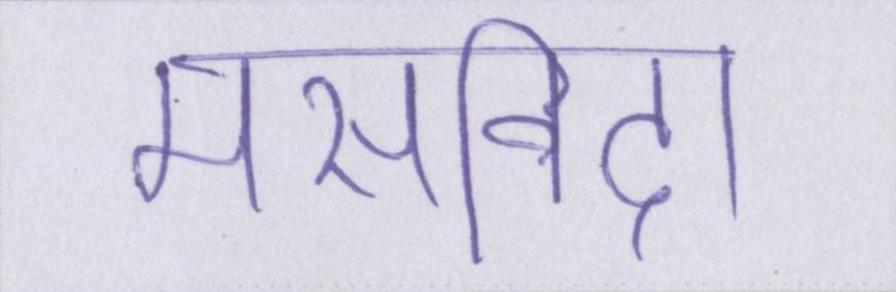 मसविदा